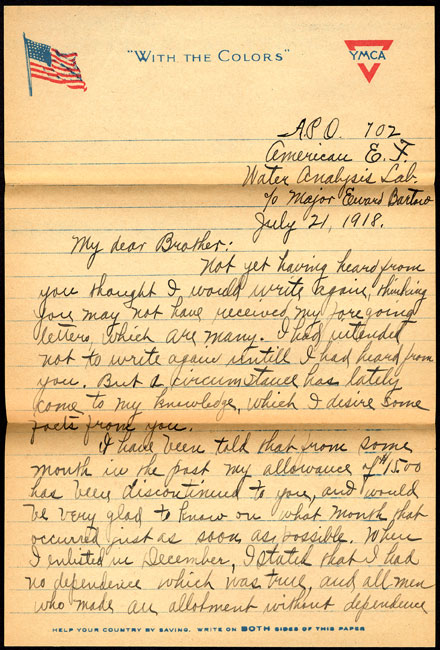 "WITH THE COLORS"
YMCA
A.P.O. 702
American E. F.
Water Analysis Lab.
c/o Major Edward Bartow
July 21, 1918.
My dear Brother:
Not yet having heard from
you thought I would write again, thinking
you may not have received my foregoing
letters, which are many. I had intended
not to write again untill I had heard from
you. But a circumstance has lately
come to my knowledge, which I desire some
facts from you.
I have been told that from some
month in the past my allowance of $15.00
has been discontinued to you, and would
be very glad to know on what month that
occurred just as soon as possible. When
I enlisted in December, I stated that I had
no dependence which was true, and all men
who made an allotment without dependence
HELP YOUR COUNTRY BY SAVING. WRITE ON BOTH SIDES OF THIS PAPER